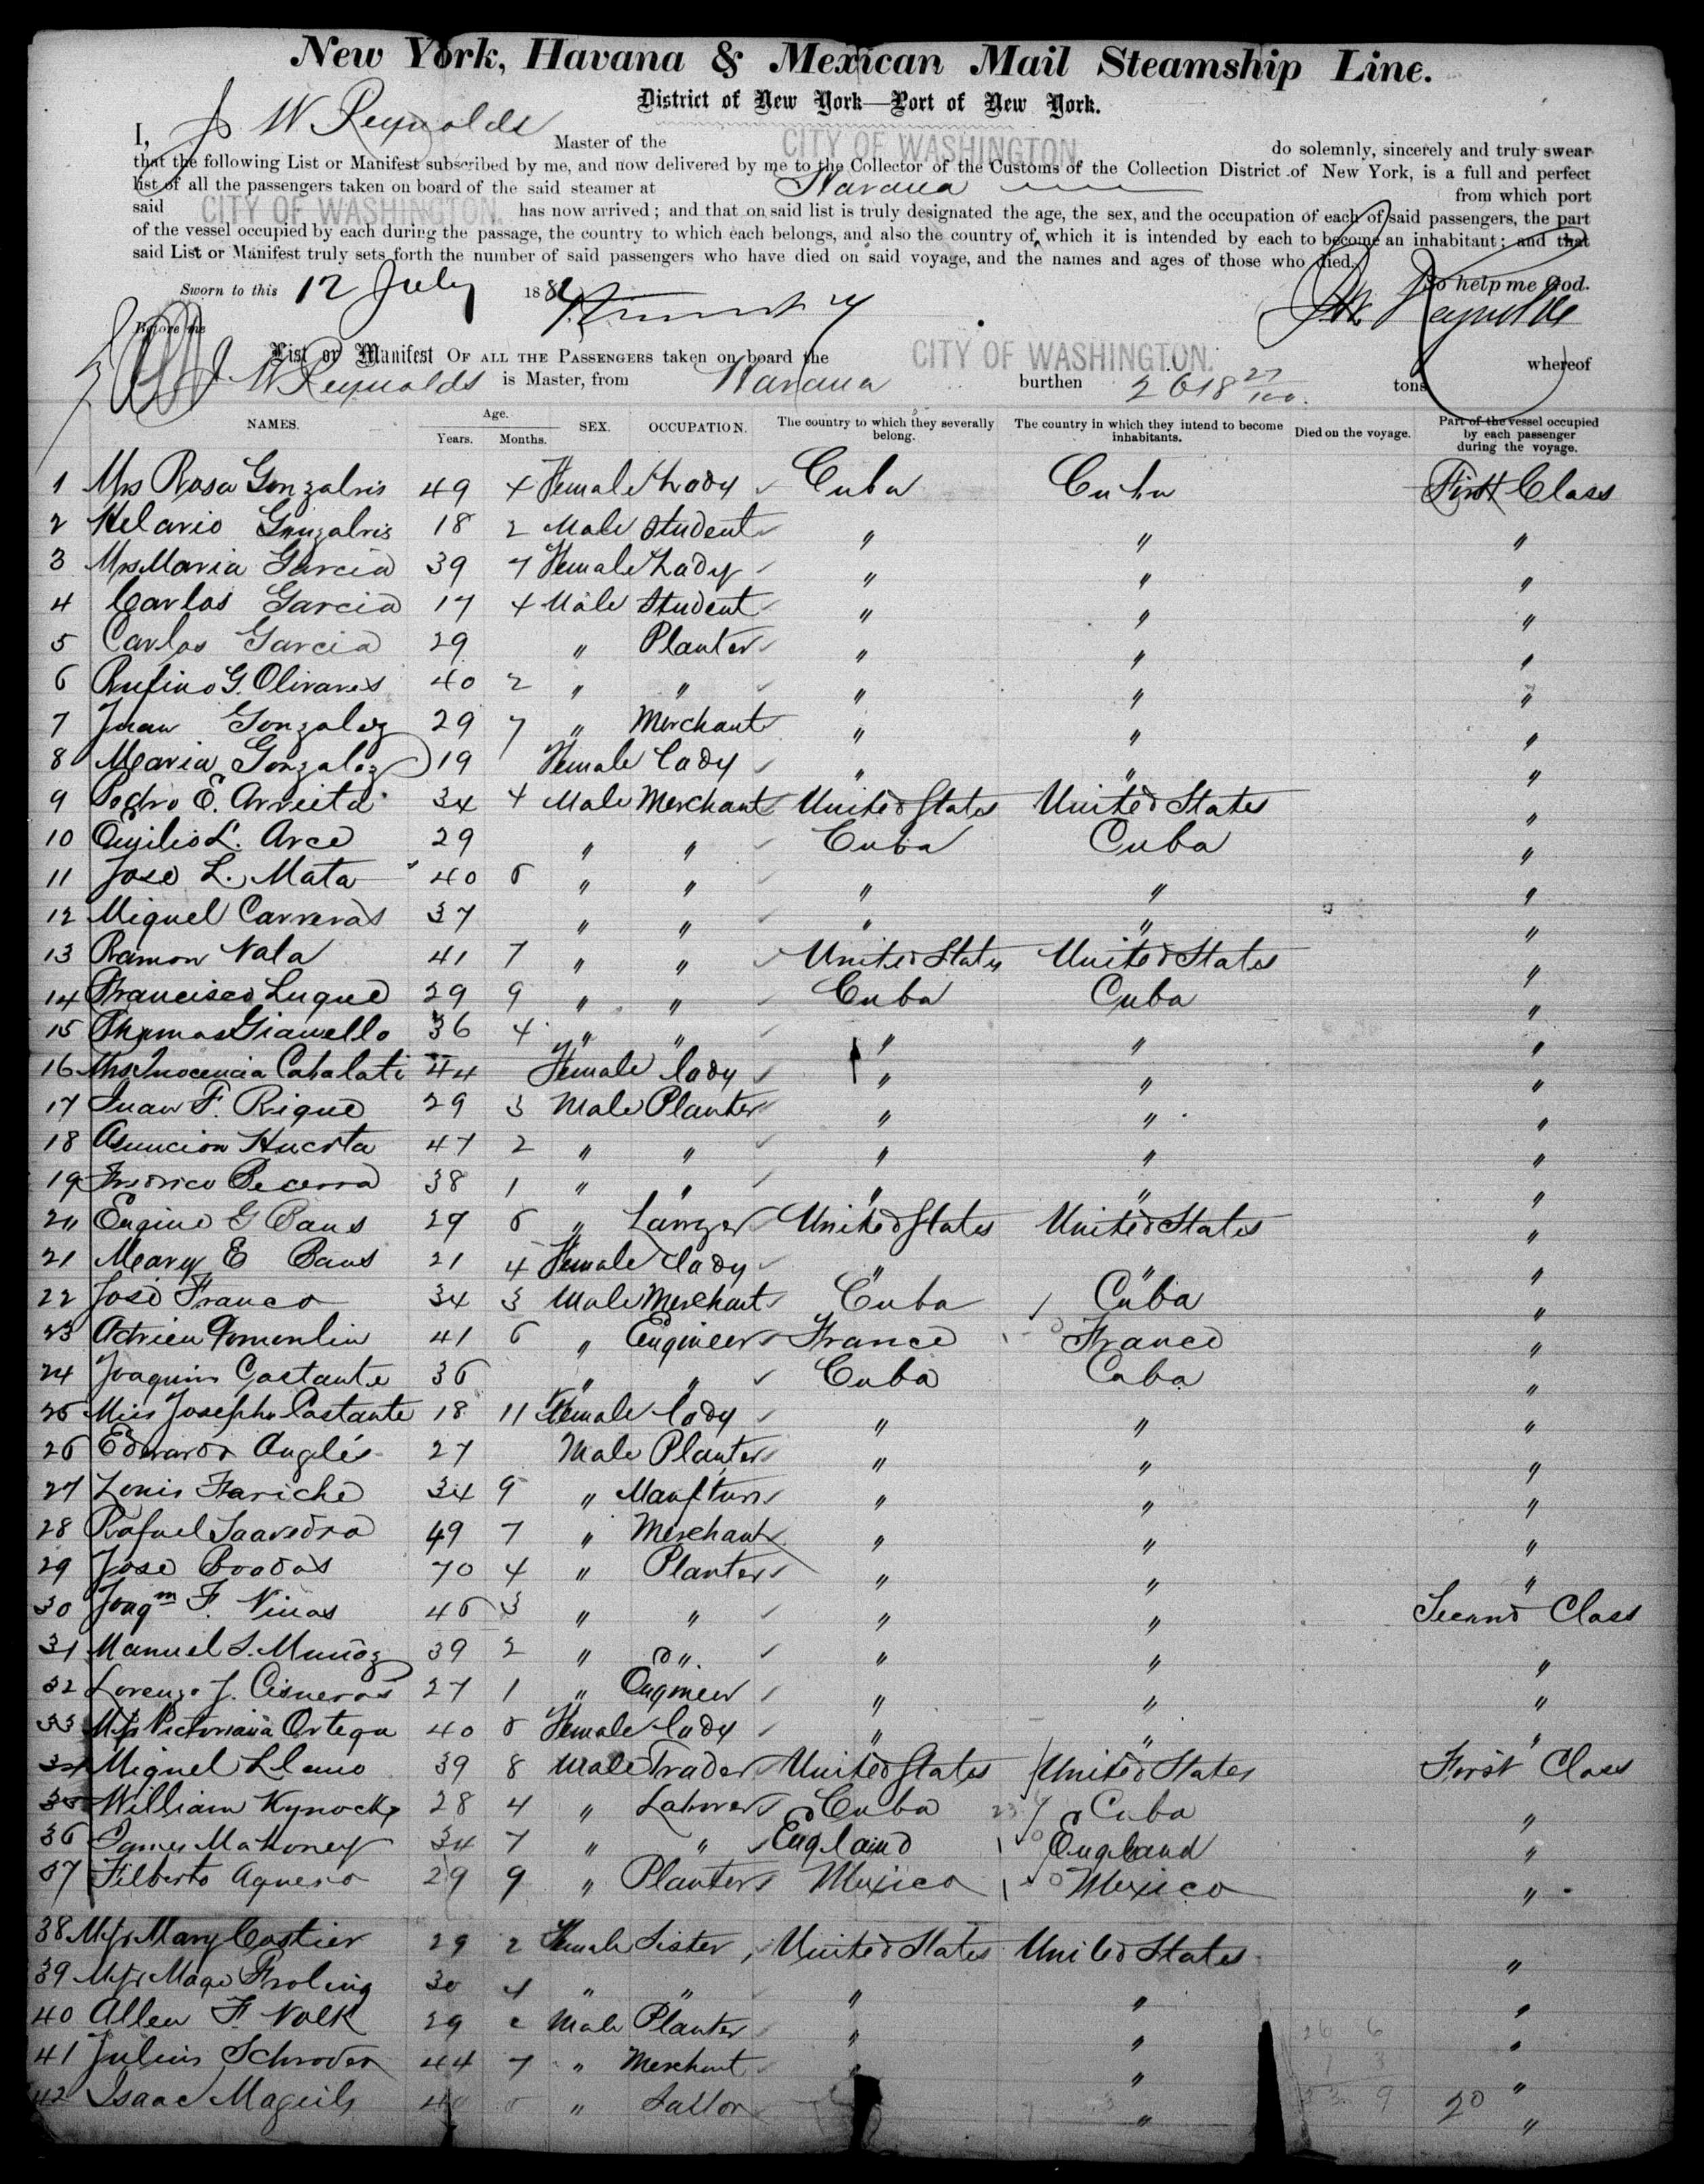 New York, Havana & Mexican Mail Steamship Line.
District of New York—Port of New York.
I, J W Reynolds Master of the CITY OF WASHINGTON do solemnly, sincerely and truly swear
that the following List or Manifest subscribed by me, and now delivered by me to the Collector of the Customs of the Collection District of New York, is a full and perfect
list of all the passengers taken on board of the said steamer at Havana from which port
said CITY OF WASHINGTON. has now arrived; and that on said list is truly designated the age, the sex, and the occupation of each of said passengers, the part
of the vessel occupied by each during the passage, the country to which each belongs, and also the country of which it is intended by each to become an inhabitant; and that
said List or Manifest truly sets forth the number of said passengers who have died on said voyage, and the names and ages of those who died.
Sworn to this 12 July 188 So help me God.
Before me J W Reynolds
List or Manifest OF ALL THE PASSENGERS taken on board the CITY OF WASHINGTON. whereof
J W Reynolds is Master, from Havana burthen 2618 27/100 tons
NAMES. Age. Years. Months. SEX. OCCUPATION. The country to which they severally belong. The country in which they intend to become inhabitants. Died on the voyage. Part of the vessel occupied by each passenger during the voyage.
1 Mrs Rosa Gonzalris 49 4 Female Lady Cuba Cuba First Class
2 Helario Gonzalris 18 2 Male Student " " "
3 Mrs Maria Garcia 39 7 Female Lady " " "
4 Carlos Garcia 17 4 Male Student " " "
5 Carlos Garcia 29 " Planter " " "
6 Rufino G. Olivares 40 2 " " " " "
7 Juan Gonzalez 29 7 " Merchant " " "
8 Maria Gonzalez 19 Female Lady " " "
9 Pedro E. Arrieta 34 4 Male Merchant United States United States "
10 Emilio L. Arce 29 " " Cuba Cuba "
11 Jose L. Mata 40 6 " " " " "
12 Miguel Carreras 37 " " " " "
13 Ramon Vala 41 7 " " United States United States "
14 Francisco Luque 29 9 " " Cuba Cuba "
15 Thomas Gianello 36 4 " " " " "
16 Mrs Inocencia Cabalati 44 Female lady " " "
17 Juan F. Rique 29 3 Male Planter " " "
18 Asuncion Huerta 47 2 " " " " "
19 Fredrico Becerra 38 1 " " " " "
20 Eugine G Baus 29 6 " Lawyer United States United States "
21 Meary E Baus 21 4 Female lady " " "
22 José Franco 34 3 Male Merchant Cuba Cuba "
23 Adrien Fomenlin 41 6 " Engineer France France "
24 Joaquin Castante 36 " " Cuba Cuba "
25 Miss Josepha Castante 18 11 Female lady " " "
26 Edwardo Anglés 27 Male Planter " " "
27 Louis Fariche 34 9 " Manfturr " " "
28 Rafael Saavedra 49 7 " Merchant " " "
29 Jose Boodas 70 4 " Planter " " "
30 Joaqm F. Vinas 46 3 " " " " Second Class
31 Manuel S. Muñoz 39 2 " " " " "
32 Lorenzo J. Cisneros 27 1 " Engineer " " "
33 Mrs Victoriana Ortega 40 6 Female lady " " "
34 Miguel Llano 39 8 Male Trader United States United States First Class
35 William Kynocky 28 4 " Laborer Cuba Cuba "
36 James Mahoney 34 7 " " England England "
37 Filberto Aguero 29 9 " Planter Mexico Mexico "
38 Miss Mary Costier 29 2 Female Sister United States United States "
39 Miss Mage Froling 30 4 " " " " "
40 Allen F. Volk 29 2 Male Planter " " "
41 Julius Schroder 44 7 " Merchant " " "
42 Isaac Magills 40 6 " Sailor " "
20